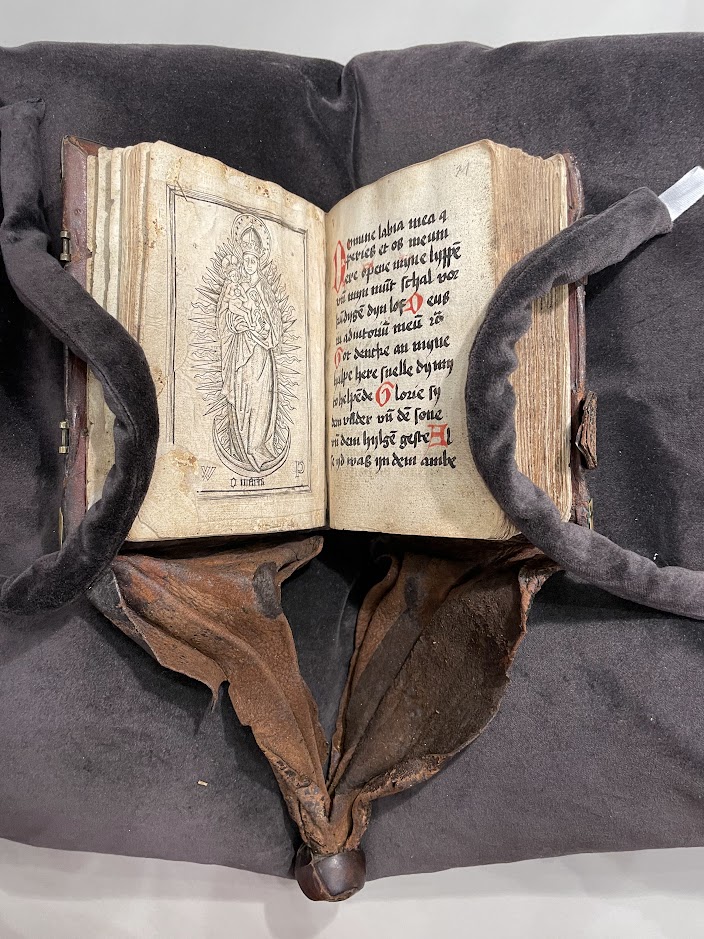 W P
O maria
Domine labia mea a
peries et os meum
Here opene myne lyppē
vn̄ myn mūt schal vor
kūdygē dyn lof Deus
in adiutoriū meū
Got dencke an myne
hulpe here snelle dy my
to helpēde Glorie sy
dem vader vn̄ dē sone
vn̄ dem hylgē geste Al
se yd was yn dem anbe